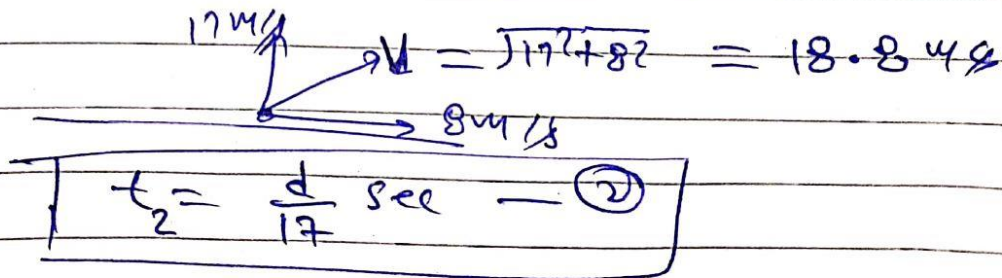 17 m/s V = √17²+8² = 18.8 m/s
8 m/s
t₂ = d/17 sec — ②